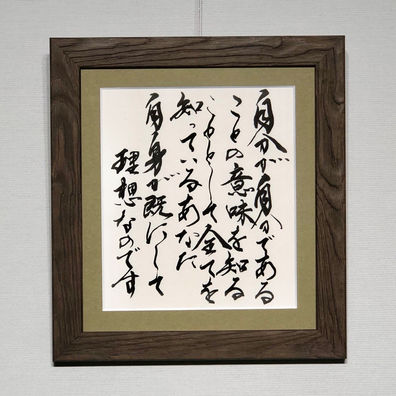 自分が自分である
ことの意味を知る
として全てを
知っているあなた
自身が既にして
理想なのです